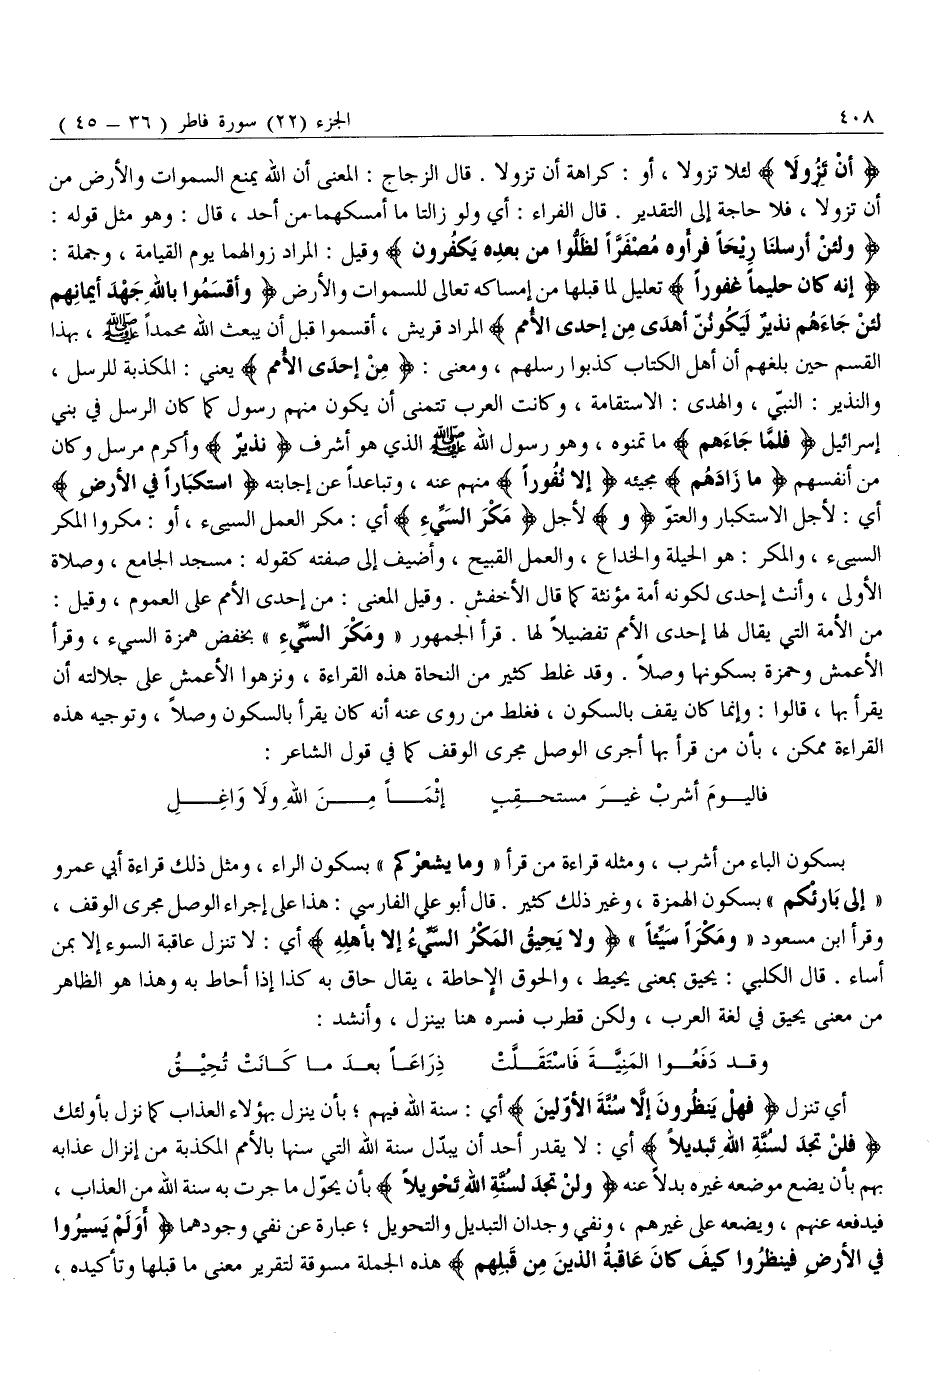 ٤٠٨
الجزء (٢٢) سورة فاطر ( ٣٦ – ٤٥ )
﴿ أنْ تَزُولَا ﴾ لئلا تزولا ، أو : كراهة أن تزولا . قال الزجاج : المعنى أن الله يمنع السموات والأرض من
أن تزولا ، فلا حاجة إلى التقدير . قال الفراء : أي ولو زالتا ما أمسكهما من أحد ، قال : وهو مثل قوله :
﴿ ولئنْ أرسلنَا رِيْحَاً فرأوه مُصْفَرَّاً لظَلُّوا من بعدِه يَكفُرون ﴾ وقيل : المراد زوالهما يوم القيامة ، وجملة :
﴿ إنه كان حليماً غفوراً ﴾ تعليل لما قبلها من إمساكه تعالى للسموات والأرض ﴿ وأقسَمُوا باللهِ جَهْدَ أيمانِهم
لئنْ جَاءَهُم نذيرٌ لَيَكُونُنّ أهدَى مِن إحدى الأُمم ﴾ المراد قريش ، أقسموا قبل أن يبعث الله محمداً ﷺ ، بهذا
القسم حين بلغهم أن أهل الكتاب كذبوا رسلهم ، ومعنى : ﴿ مِنْ إحدَى الأُمم ﴾ يعني : المكذبة للرسل ،
والنذير : النبيّ ، والهدى : الاستقامة ، وكانت العرب تتمنى أن يكون منهم رسول كما كان الرسل في بني
إسرائيل ﴿ فلمَّا جَاءَهم ﴾ ما تمنوه ، وهو رسول الله ﷺ الذي هو أشرف ﴿ نذيرٌ ﴾ وأكرم مرسل وكان
من أنفسهم ﴿ ما زَادَهُم ﴾ مجيئه ﴿ إلا نُفُوراً ﴾ منهم عنه ، وتباعداً عن إجابته ﴿ استكبَاراً في الأرضِ ﴾
أي : لأجل الاستكبار والعتوّ ﴿ و ﴾ لأجل ﴿ مَكْرَ السَيِّءِ ﴾ أي : مكر العمل السيىء ، أو : مكروا المكر
السيىء ، والمكر : هو الحيلة والخداع ، والعمل القبيح ، وأضيف إلى صفته كقوله : مسجد الجامع ، وصلاة
الأولى ، وأنث إحدى لكونه أمة مؤنثة كما قال الأخفش . وقيل المعنى : من إحدى الأمم على العموم ، وقيل :
من الأمة التي يقال لها إحدى الأمم تفضيلاً لها . قرأ الجمهور « ومَكْرَ السَّيِّءِ » بخفض همزة السيء ، وقرأ
الأعمش وحمزة بسكونها وصلاً . وقد غلط كثير من النحاة هذه القراءة ، ونزهوا الأعمش على جلالته أن
يقرأ بها ، قالوا : وإنما كان يقف بالسكون ، فغلط من روى عنه أنه كان يقرأ بالسكون وصلاً ، وتوجيه هذه
القراءة ممكن ، بأن من قرأ بها أجرى الوصل مجرى الوقف كما في قول الشاعر :
فاليـومَ أشربْ غيـرَ مستحقـبٍ إثْمَـاً مِـنَ اللهِ ولَا وَاغِـلِ
بسكون الباء من أشرب ، ومثله قراءة من قرأ « وما يشعرْكم » بسكون الراء ، ومثل ذلك قراءة أبي عمرو
« إلى بَارئْكم » بسكون الهمزة ، وغير ذلك كثير . قال أبو علي الفارسي : هذا على إجراء الوصل مجرى الوقف ،
وقرأ ابن مسعود « ومَكْرَاً سَيِّئاً » ﴿ ولا يَحِيقُ المَكْرُ السَّيِّءُ إلا بأهلِهِ ﴾ أي : لا تنزل عاقبة السوء إلا بمن
أساء . قال الكلبي : يحيق بمعنى يحيط ، والحوق الإحاطة ، يقال حاق به كذا إذا أحاط به وهذا هو الظاهر
من معنى يحيق في لغة العرب ، ولكن قطرب فسره هنا بينزل ، وأنشد :
وقـد دَفَعُـوا المَنِيَّـةَ فَاسْتَقَلَّـتْ ذِرَاعَـاً بعـدَ مـا كَـانَتْ تُحِيْـقُ
أي تنزل ﴿ فهلْ يَنظُرونَ إلَّا سُنَّةَ الأوّلينَ ﴾ أي : سنة الله فيهم ؛ بأن ينزل بهؤلاء العذاب كما نزل بأولئك
﴿ فلنْ تجدَ لسُنَّةِ الله تَبديلاً ﴾ أي : لا يقدر أحد أن يبدّل سنة الله التي سنها بالأمم المكذبة من إنزال عذابه
بهم بأن يضع موضعه غيره بدلاً عنه ﴿ ولنْ تجدَ لسُنَّةِ الله تَحْويلاً ﴾ بأن يحوّل ما جرت به سنة الله من العذاب ،
فيدفعه عنهم ، ويضعه على غيرهم ، ونفي وجدان التبديل والتحويل ؛ عبارة عن نفي وجودهما ﴿ أَوَلَمْ يَسيرُوا
في الأرضِ فينظُروا كيفَ كانَ عاقبةُ الذينَ مِن قَبلِهم ﴾ هذه الجملة مسوقة لتقرير معنى ما قبلها وتأكيده ،